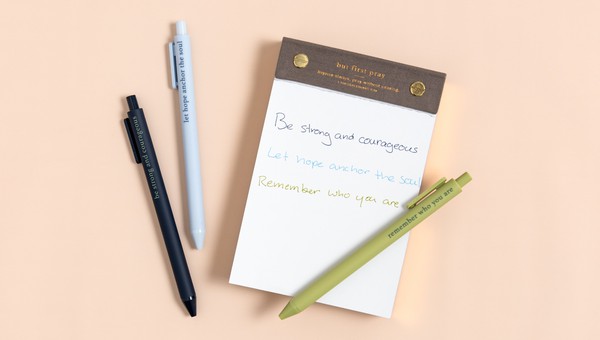 let hope anchor the soul
be strong and courageous
but first pray
Be strong and courageous
Let hope anchor the soul
Remember who you are
remember who you are